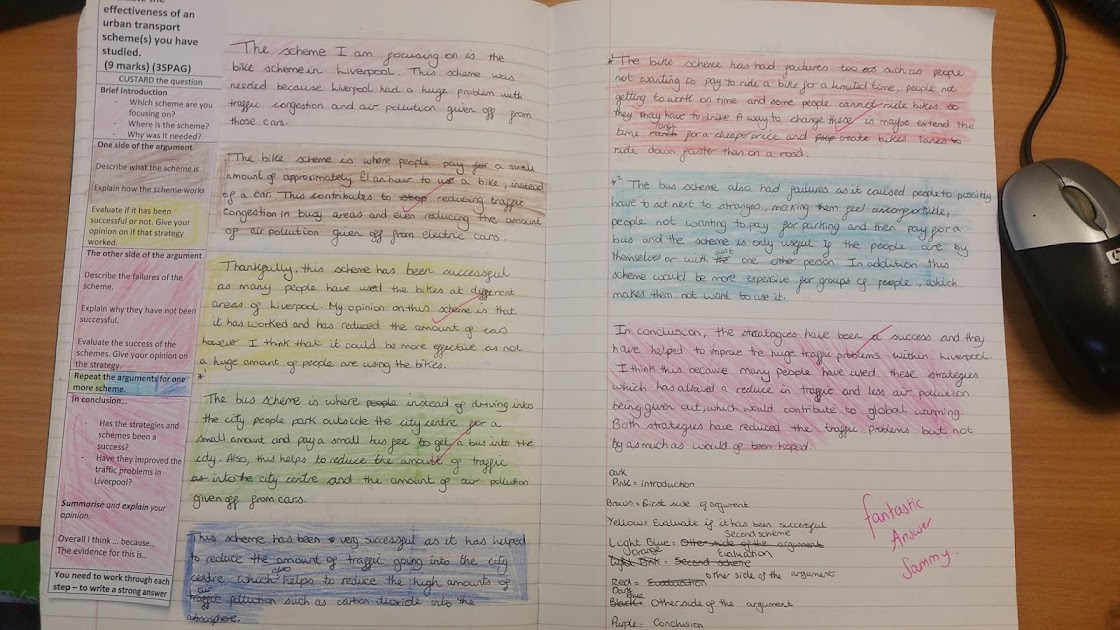 effectiveness of an
urban transport
scheme(s) you have
studied.
(9 marks) (3SPAG)
CUSTARD the question
Brief introduction
- Which scheme are you
focusing on?
- Where is the scheme?
- Why was it needed?
One side of the argument
Describe what the scheme is
Explain how the scheme works
Evaluate if it has been
successful or not. Give your
opinion on if that strategy
worked.
The other side of the argument
Describe the failures of the
scheme.
Explain why they have not been
successful.
Evaluate the success of the
schemes. Give your opinion on
the strategy.
Repeat the arguments for one
more scheme.
In conclusion...
- Has the strategies and
schemes been a
success?
- Have they improved the
traffic problems in
Liverpool?
Summarise and explain your
opinion.
Overall I think ... because...
The evidence for this is...
You need to work through each
step – to write a strong answer
The scheme I am focusing on is the
bike scheme in Liverpool. This scheme was
needed because Liverpool had a huge problem with
traffic congestion and air pollution given off from
those cars.
The bike scheme is where people pay for a small
amount of approximately £1 an hour to use a bike, instead
of a car. This contributes to stop reducing traffic
congestion in busy areas and even reducing the amount
of air pollution given off from electric cars.
Thankfully, this scheme has been successful
as many people have used the bikes at different
areas of Liverpool. My opinion on this scheme is that
it has worked and has reduced the amount of cars
however I think that it could be more effective as not
a huge amount of people are using the bikes.
*1
The bus scheme is where people instead of driving into
the city people park outside the city centre for a
small amount and pay a small bus fee to get a bus into the
city. Also, this helps to reduce the amount of traffic
as into the city centre and the amount of air pollution
given off from cars.
This scheme has been very successful as it has helped
to reduce the amount of traffic going into the city
centre which also helps to reduce the high amounts of
air
traffic pollution such as carbon dioxide into the
atmosphere.
* The bike scheme has had failures too such as people
not wanting to pay to ride a bike for a limited time, people not
getting to work on time and some people cannot ride bikes so
they may have to drive. A way to change these is maybe extend the
time for a cheaper price and create bikes lanes to
ride down faster than on a road.
*2 The bus scheme also had failures as it caused people to possibly
have to sit next to stranges, making them feel uncomfortable,
people not wanting to pay for parking and then pay for a
bus and the scheme is only useful if the people are by
themselves or with just one other person. In addition this
scheme would be more expensive for groups of people, which
makes them not want to use it.
In conclusion, the strategies have been a success and they
have helped to improve the huge traffic problems within Liverpool.
I think this because many people have used these strategies
which has allowed a reduce in traffic and less air pollution
being given out, which would contribute to global warming.
Both strategies have reduced the traffic problems but not
by as much as would of been hoped.
Dark
Pink = introduction
Brown = First side of argument
Yellow = Evaluate if it has been successful
Second scheme
Light Blue = Other side of the argument
Orange Evaluation
Light Pink = Second scheme
Red = Evaluation other side of the argument
Dark Blue
Black = Other side of the argument
Purple = Conclusion
fantastic
Answer
Sammy.